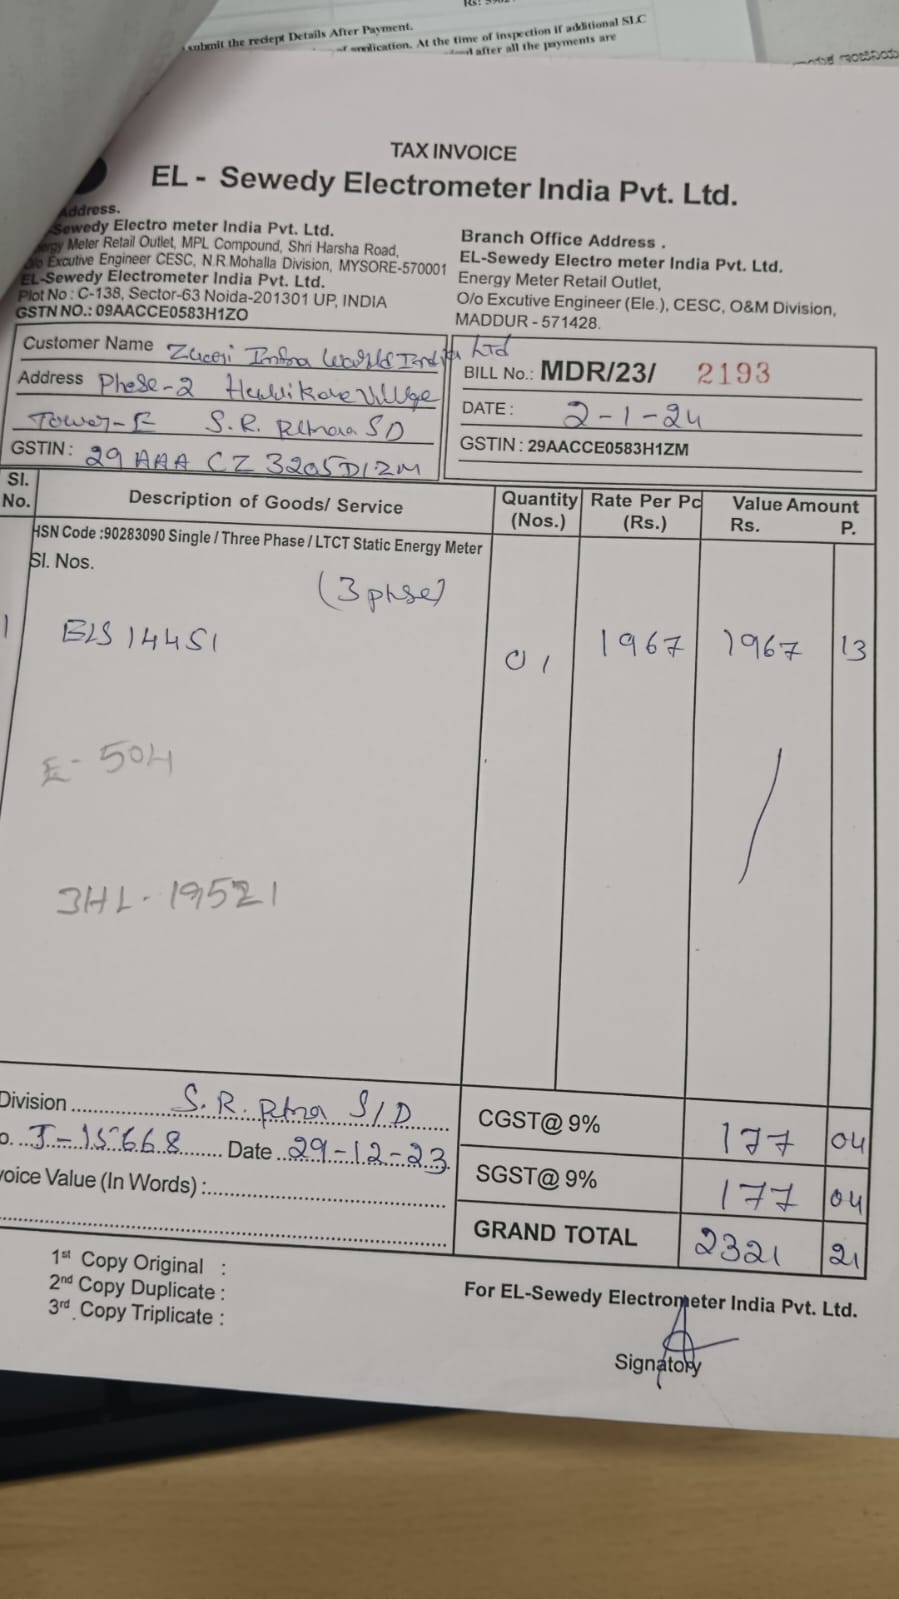 submit the reciept Details After Payment.
At the time of inspection if additional SLC
after all the payments are
TAX INVOICE
EL - Sewedy Electrometer India Pvt. Ltd.
Address.
Sewedy Electro meter India Pvt. Ltd.
Meter Retail Outlet, MPL Compound, Shri Harsha Road,
O/o Excutive Engineer CESC, N.R Mohalla Division, MYSORE-570001
EL-Sewedy Electrometer India Pvt. Ltd.
Plot No : C-138, Sector-63 Noida-201301 UP, INDIA
GSTN NO.: 09AACCE0583H1ZO
Branch Office Address .
EL-Sewedy Electro meter India Pvt. Ltd.
Energy Meter Retail Outlet,
O/o Excutive Engineer (Ele.), CESC, O&M Division,
MADDUR - 571428.
Customer Name Infra World India Ltd
Address Phase-2 Village
Tower-E S.R. SD
GSTIN : 29 AAA CZ 3205D1ZM
BILL No.: MDR/23/ 2193
DATE : 2-1-24
GSTIN : 29AACCE0583H1ZM
Sl. No. Description of Goods/ Service Quantity (Nos.) Rate Per Pc (Rs.) Value Amount Rs. P.
HSN Code :90283090 Single / Three Phase / LTCT Static Energy Meter
Sl. Nos.
(3 phse)
1 ELS 14451 01 1967 1967 13
E- 504
3HL- 19521
Division S.R. Ptna S/D
J-15668 Date 29-12-23
voice Value (In Words) :
CGST@ 9% 177 04
SGST@ 9% 177 04
GRAND TOTAL 2321 21
1st Copy Original :
2nd Copy Duplicate :
3rd Copy Triplicate :
For EL-Sewedy Electrometer India Pvt. Ltd.
Signatory